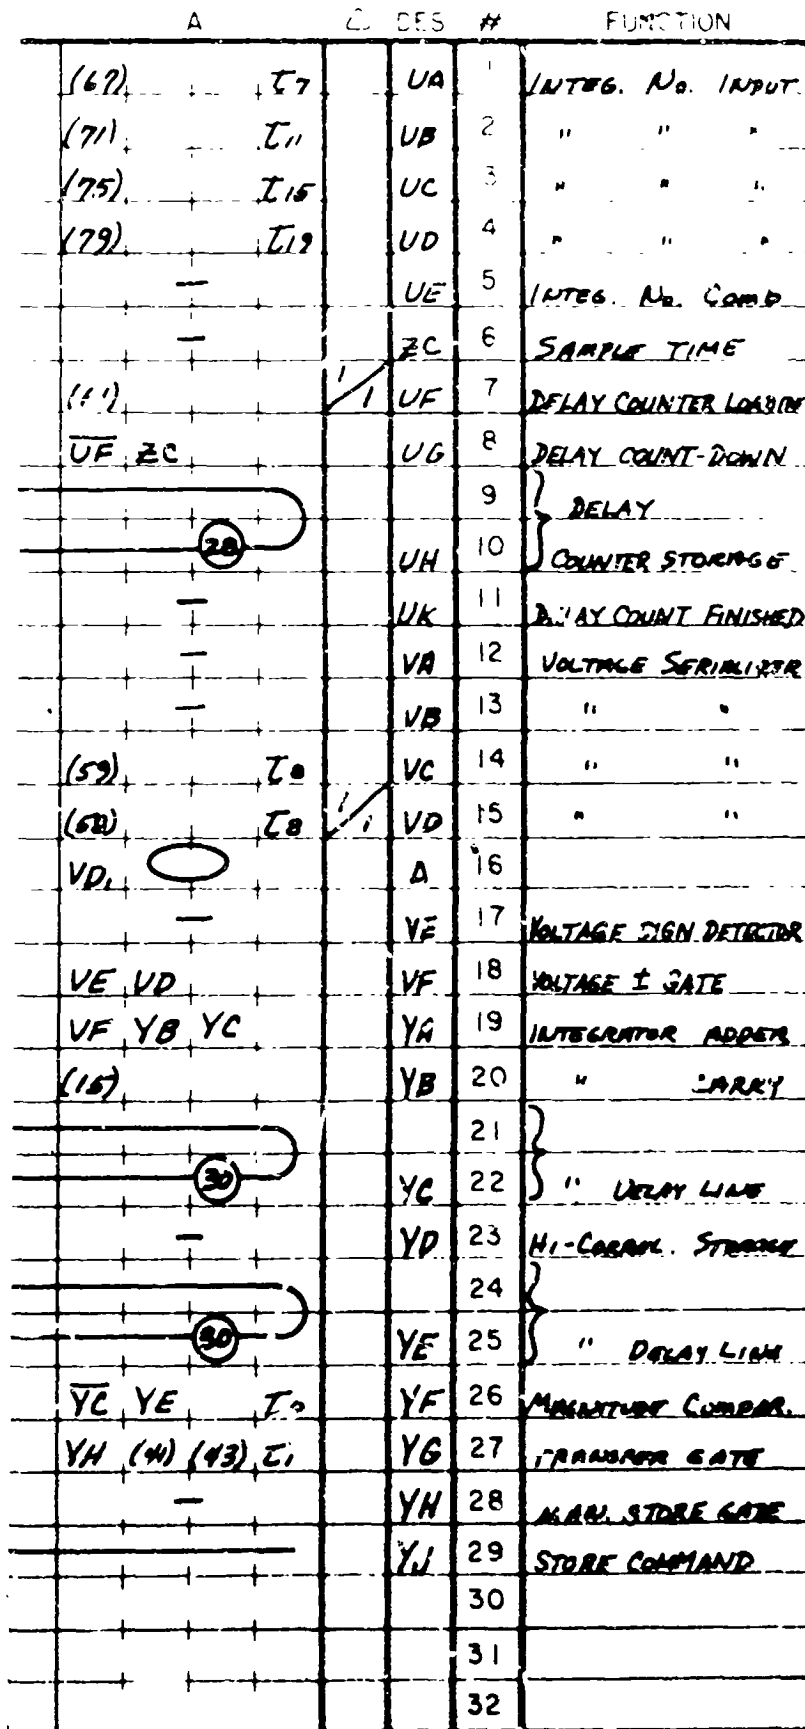 A DES # FUNCTION
(67) τ7 UA 1 INTEG. No. INPUT
(71) τ11 UB 2 " " "
(75) τ15 UC 3 " " "
(79) τ19 UD 4 " " "
— UE 5 INTEG. No. COMD
— ZC 6 SAMPLE TIME
1/1 UF 7 DELAY COUNTER LOADING
U̅F̅ ZC UG 8 DELAY COUNT-DOWN
9 DELAY
28 UH 10 COUNTER STORAGE
— UK 11 DELAY COUNT FINISHED
— VA 12 VOLTAGE SERIALIZER
— VB 13 " "
(59) τ8 VC 14 " "
τ8 1/1 VD 15 " "
VD, Δ 16
— VE 17 VOLTAGE SIGN DETECTOR
VE VD VF 18 VOLTAGE ± GATE
VF YB YC YA 19 INTEGRATOR ADDER
(15) YB 20 " CARRY
21
30 YC 22 " DELAY LINE
— YD 23 HI-CORREL. STORAGE
24
30 YE 25 " DELAY LINE
Y̅C̅ YE YF 26 MAGNITUDE COMPAR.
YH (41) (43) τ1 YG 27 TRANSFER GATE
— YH 28 STORE GATE
YJ 29 STORE COMMAND
30
31
32